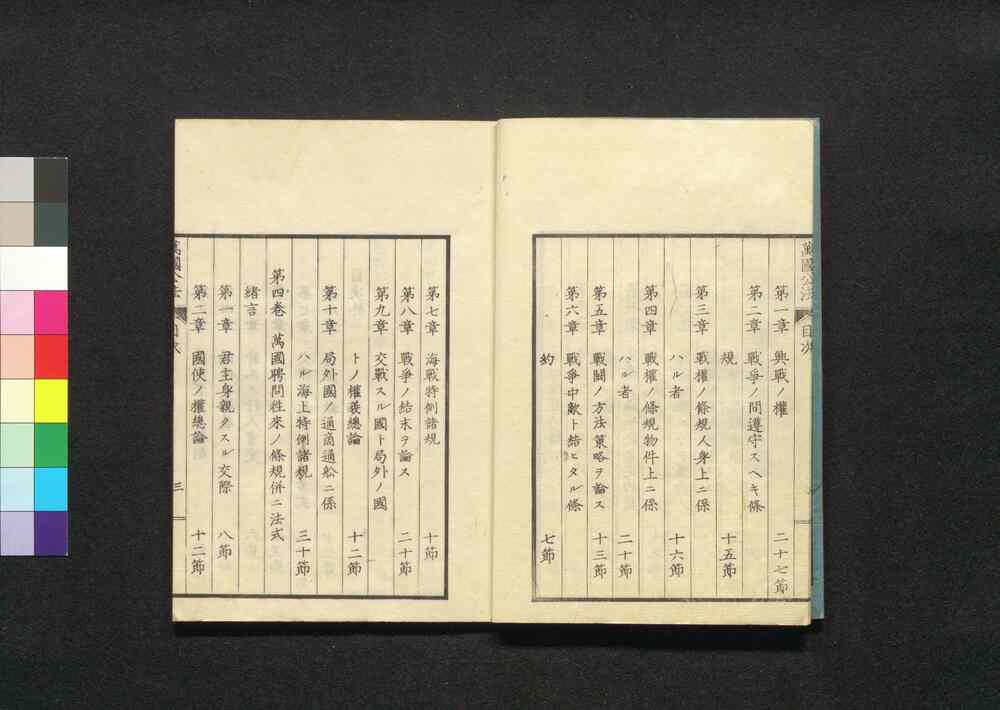 萬國公法 目次
第一章 興戰ノ權 二十七節
第二章 戰爭ノ間遵守スヘキ條
規 十五節
第三章 戰權ノ條規人身上ニ係
ハル者 十六節
第四章 戰權ノ條規物件上ニ係
ハル者 二十節
第五章 戰鬪ノ方法策略ヲ論ス 十三節
第六章 戰爭中敵ト結ヒタル條
約 七節
第七章 海戰特例諸規 十節
第八章 戰爭ノ結末ヲ論ス 二十節
第九章 交戰スル國ト局外ノ國
トノ權義總論 十二節
第十章 局外國ノ通商通舩ニ係
ハル海上特例諸規 三十節
第四卷 萬國聘問往來ノ條規併ニ法式
緒言
第一章 君主身親クスル交際 八節
第二章 國使ノ權總論 十二節
萬國公法 目次 三